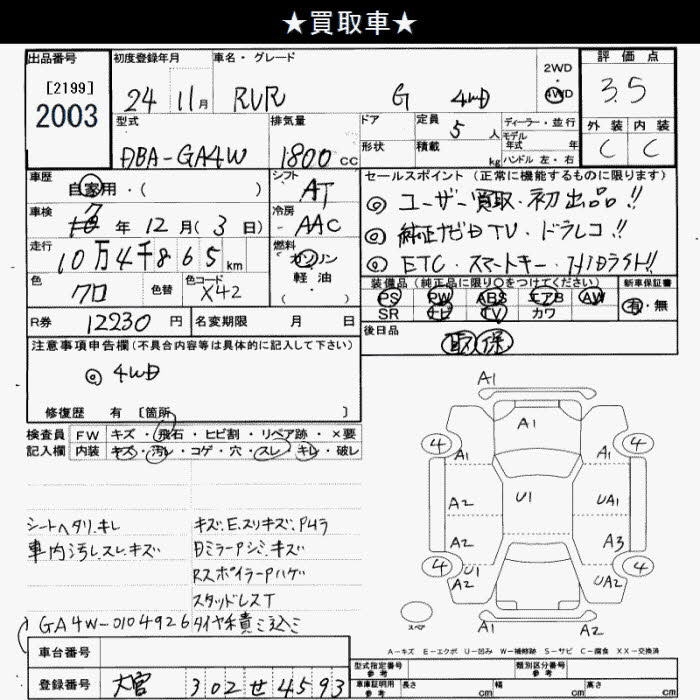 ★買取車★
出品番号 初度登録年月 車名・グレード 2WD 評価点
[2199] 2003
24 11月 RVR G 4WD 4WD 3.5
型式 排気量 ドア 定員 ディーラー・並行 外装 内装
DBA-GA4W 1800cc 5人 モデル年式 年 C C
形状 積載 kg ハンドル 左・右
車歴 自家用・( ) シフト AT
セールスポイント(正常に機能するものに限ります)
車検 年 12月(3日) 冷房 AAC
◎ ユーザー買取・初出品!!
走行 10万4千865km 燃料 ガソリン 軽・油 ( )
◎ 純正ナビTV・ドラレコ!!
◎ ETC・スマートキー・HIDライト!!
色 クロ 色替 色コード X42
装備品(純正品に限り○をつけてください) 新車保証書
PS PW ABS エアB AW 有・無
SR ナビ TV カワ
R券 12230円 名変期限 月 日
後日品 取 保
注意事項申告欄(不具合内容等は具体的に記入して下さい)
◎ 4WD
修復歴 有 [箇所 ]
検査員 FW キズ・飛石・ヒビ割・リペア跡・×要
記入欄 内装 キズ・汚レ・コゲ・穴・スレ・キレ・破レ
シートヘタリ.キレ
車内汚レ.スレ.キズ
キズ.E.スリキズ.Pムラ
Rスポイラーアハゲ
スタッドレスT
タイヤ積ミ込ミ
GA4W-0104926
A1
A1
4 A1 A1 4
A2 U1 UA1
A2 A3
4 U1 A2 UA2 4
A1 A2
スペア
A-キズ E-エクボ U-凹み W-補修跡 S-サビ C-腐食 XX-交換済
車台番号
登録番号 大宮 302せ4593
型式指定番号 参考 類別区分番号 参考
車庫証明用 参考 長さ cm 幅 cm 高さ cm